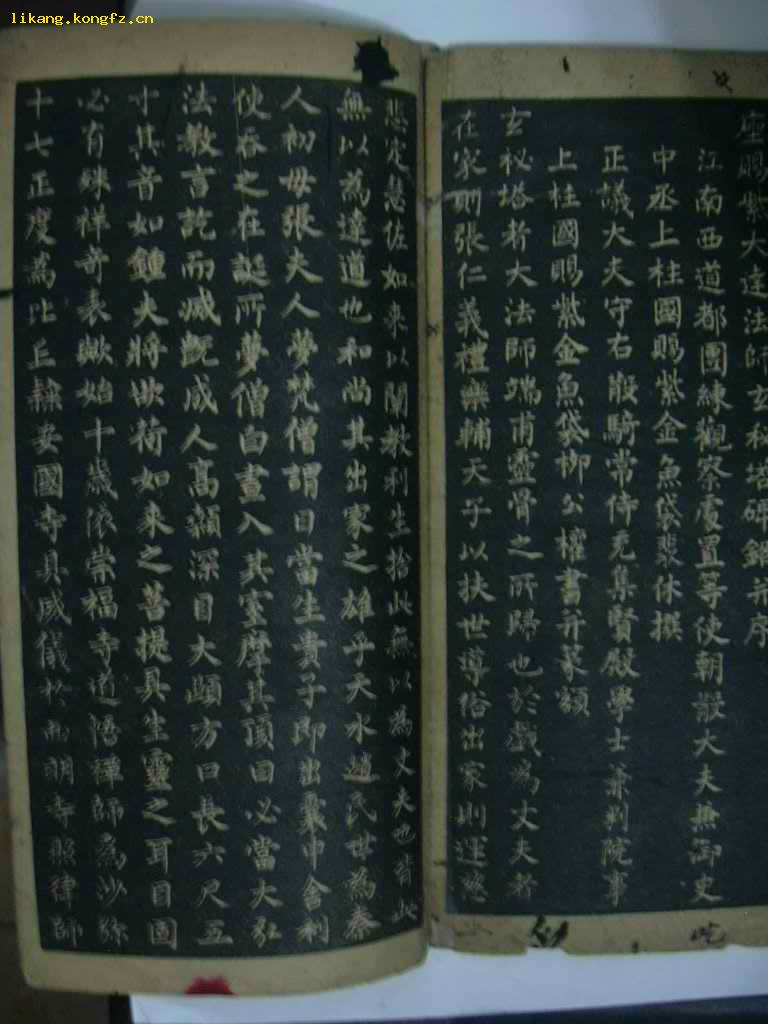 likang.kongfz.cn
座賜紫大達法師玄秘塔碑銘并序
江南西道都團練觀察處置等使朝散大夫兼御史
中丞上柱國賜紫金魚袋裴休撰
正議大夫守右散騎常侍充集賢殿學士兼判院事
上柱國賜紫金魚袋柳公權書并篆額
玄秘塔者大法師端甫靈骨之所歸也於戲為丈夫者
在家則張仁義禮樂輔天子以扶世導俗出家則運慈
悲定慧佐如來以闡教利生捨此無以為丈夫也背此
無以為達道也和尚其出家之雄乎天水趙氏世為秦
人初母張夫人夢梵僧謂曰當生貴子即出囊中舍利
使吞之及誕所夢僧白晝入其室摩其頂曰必當大弘
法教言訖而滅既成人高顙深目大頤方口長六尺五
寸其音如鍾夫將欲荷如來之菩提具生靈之耳目固
必有殊祥奇表歟始十歲依崇福寺道悟禪師為沙弥
十七正度為比丘隸安國寺具威儀於西明寺照律師